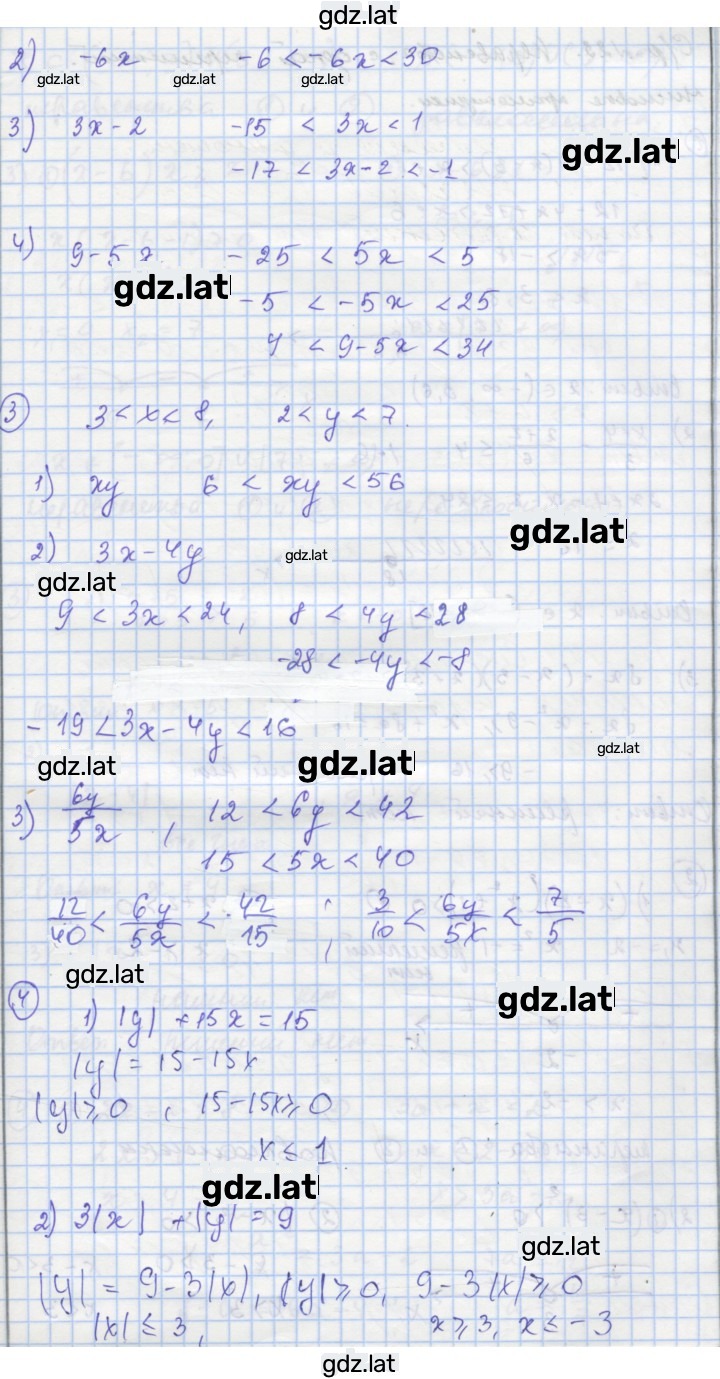 gdz.lat
2) -6x -6 < -6x < 30
gdz.lat gdz.lat gdz.lat
3) 3x-2 -15 < 3x < 1
gdz.lat
-17 < 3x-2 < -1
4) 9-5x -25 < 5x < 5
gdz.lat
-5 < -5x < 25
4 < 9-5x < 34
3 3 < x < 8, 2 < y < 7.
1) xy 6 < xy < 56
gdz.lat
2) 3x-4y gdz.lat
gdz.lat
9 < 3x < 24, 8 < 4y < 28
-28 < -4y < -8
-19 < 3x-4y < 16
gdz.lat
gdz.lat gdz.lat
3) 6y/5x , 12 < 6y < 42
15 < 5x < 40
12/40 < 6y/5x < 42/15 ; 3/10 < 6y/5x < 7/5
gdz.lat
4 gdz.lat
1) |y| + 15x = 15
|y| = 15-15x
|y| ⩾ 0 , 15-15x ⩾ 0
x ≤ 1
gdz.lat
2) 3|x| + |y| = 9
gdz.lat
|y| = 9-3|x|, |y| ⩾ 0, 9-3|x| ⩾ 0
|x| ≤ 3, x ⩾ 3, x ≤ -3
gdz.lat